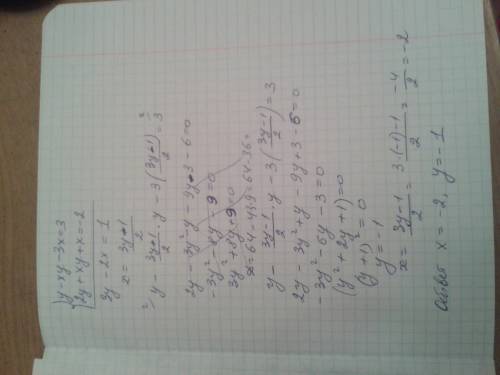 y-xy-3x=3
2y+xy+x=-2
3y-2x=1
x=\frac{3y-1}{2}
y-\frac{3y+1}{2}·y-3(\frac{3y+1}{2})=3
2y-3y²-y-9y-3-6=0
-3y²-8y-9=0
3y²+8y+9=0
y-\frac{3y-1}{2}·y-3(\frac{3y-1}{2})=3
2y-3y²+y-9y+3-6=0
-3y²-6y-3=0
(y²+2y+1)=0
(y+1)²=0
y=-1
x=\frac{3y-1}{2}=\frac{3·(-1)-1}{2}=\frac{-4}{2}=-2
Ответ x=-2, y=-1